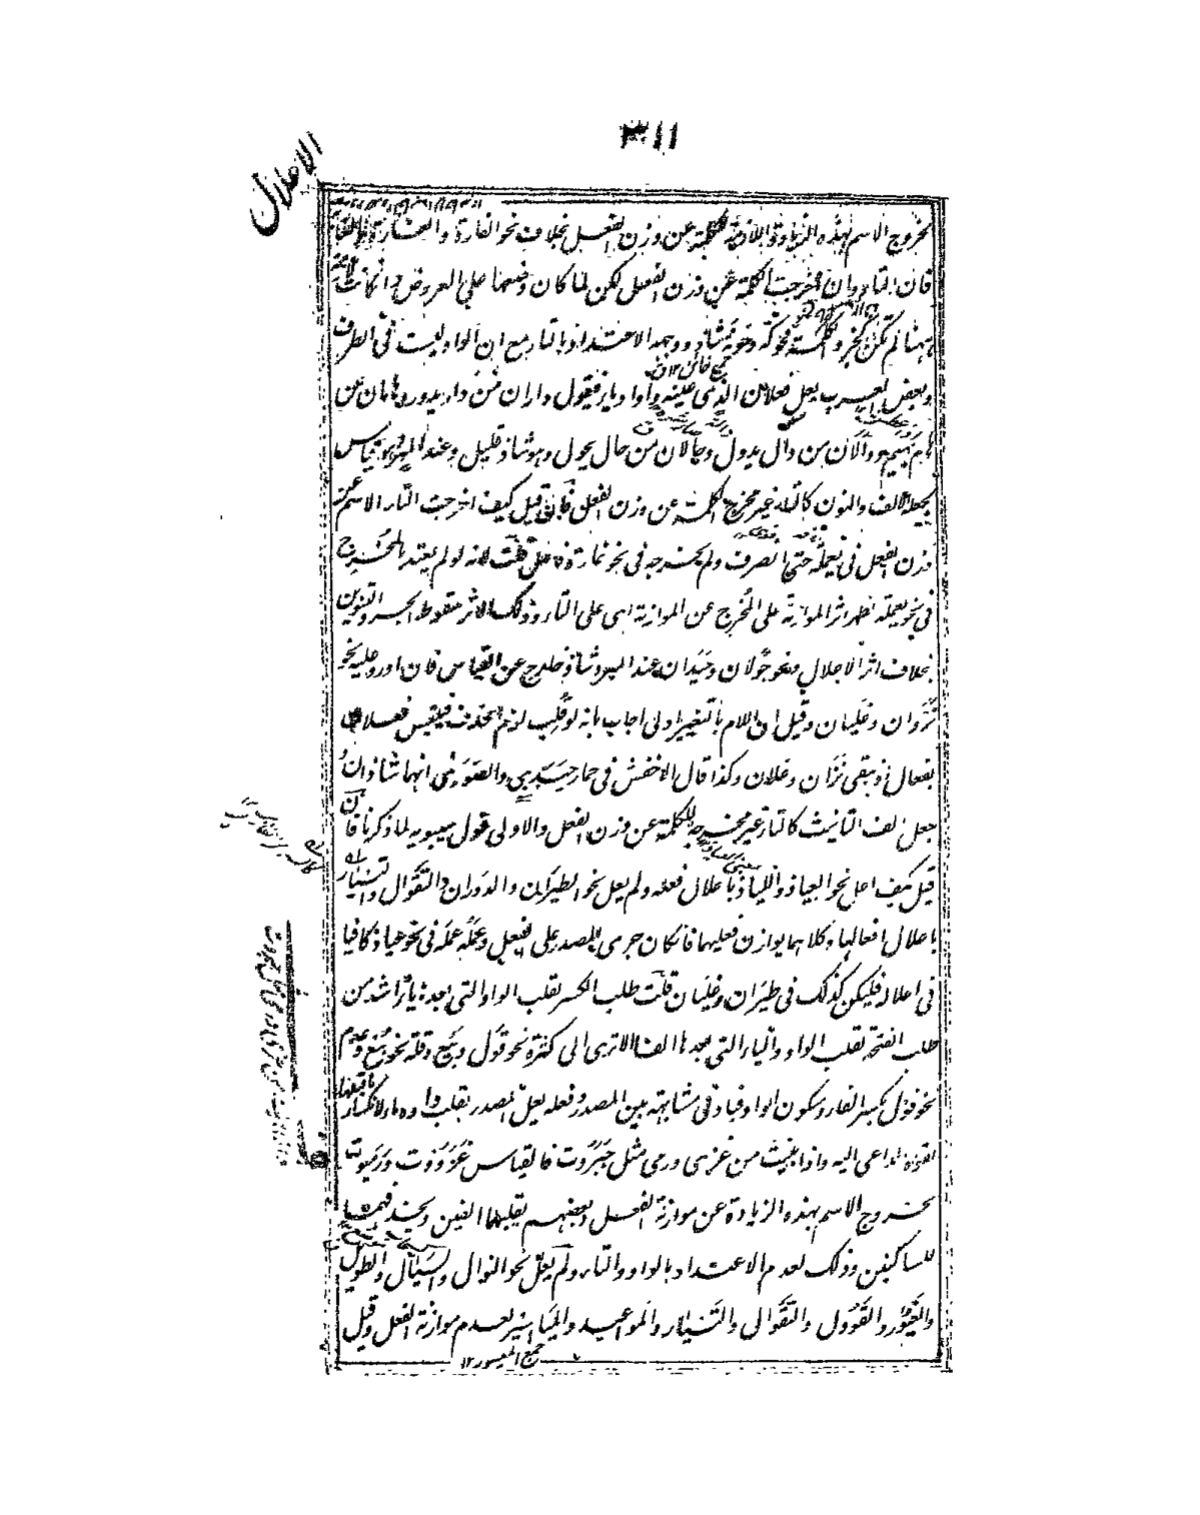 ٣١١
الاعلال
لخروج الاسم بهذه الزيادة اللازمة للكلمة عن وزن الفعل بخلاف نحو الغارة والغارة
فان التاء وان اخرجت الكلمة عن وزن الفعل لكن لما كان وضعها على العروض وان كانت لازمة
ههنا لم تكن كجزء الكلمة فحوكة وخونة شاذ ووجه الاعتداد بالتاء مع ان الواو ليست فى الطرف
وبعض العرب يعل فعلان الذى عينه واو او ياء فيقول داران من دار يدور وهامان من
هام يهيم ودالان من دال يدول وحالان من حال يحول وهو شاذ قليل وعند المبرد هو قياس
لجعله الالف والنون كالتاء غير مخرج الكلمة عن وزن الفعل فان قيل كيف اخرجت التاء الاسم عن
وزن الفعل فى يعملة حتى انصرف ولم يخرجه فى نحو غارة فاعل قلت لانه لو لم يعتد بالمخرج
فى نحو يعملة لظهر اثر الموازنة على المخرج عن الموازنة اى على التاء وذلك الاثر سقوط الجر والتنوين
بخلاف اثر الاعلال فنحو جولان وحيدان عند المبرد شاذ خارج عن القياس فان اورد عليه نحو
نزوان وغليان وقيل ان اللام بالتغيير اولى اجاب بانه لو قلب لزم الحذف فيلتبس فعلان
بفعال اذ يبقى نزان وغلان وكذا قال الاخفش فى حمار حيدى والصورى انهما شاذان
جعل الف التانيث كالتاء غير مخرجه للكلمة عن وزن الفعل والاولى قول سيبويه لما ذكرنا فان
قيل كيف اعل نحو العياذ واللياذ باعلال فعله ولم يعل نحو الطيران والدوران والتقوال والتسيار
باعلال افعالها وكلاهما يوازن فعليهما فان كان جرى المصدر على الفعل وعمله عمله فى نحو عياذ كافيا
فى اعلاله فليكن كذلك فى طيران وغليان قلت طلب الكسر لقلب الواو التى بعده ياء اشد من
طلب الفتحة لقلب الواو والياء التى بعدها الفا الا ترى الى كثرة نحو قول وبيع وقلة نحو بيع وعدم
نحو قول بكسر الفاء وسكون الواو فبادنى مشابهة بين المصدر وفعله يعل المصدر بقلب واوه ياء لانكسار ما قبلها
لقوة الداعى اليه واذا بنيت من غزى ورمى مثل جبروت فالقياس غزووت ورميوت
لخروج الاسم بهذه الزيادة عن موازنة الفعل وبعضهم يقلبهما الفين ويحذفهما
للساكنين وذلك لعدم الاعتداد بالواو والتاء ولم يعل نحو النوال والسيال والطويل
والغيور والقوول والتقوال والتسيار والمواعيد والمياسير لعدم موازنة الفعل وقيل
جمع الميسور ١٢